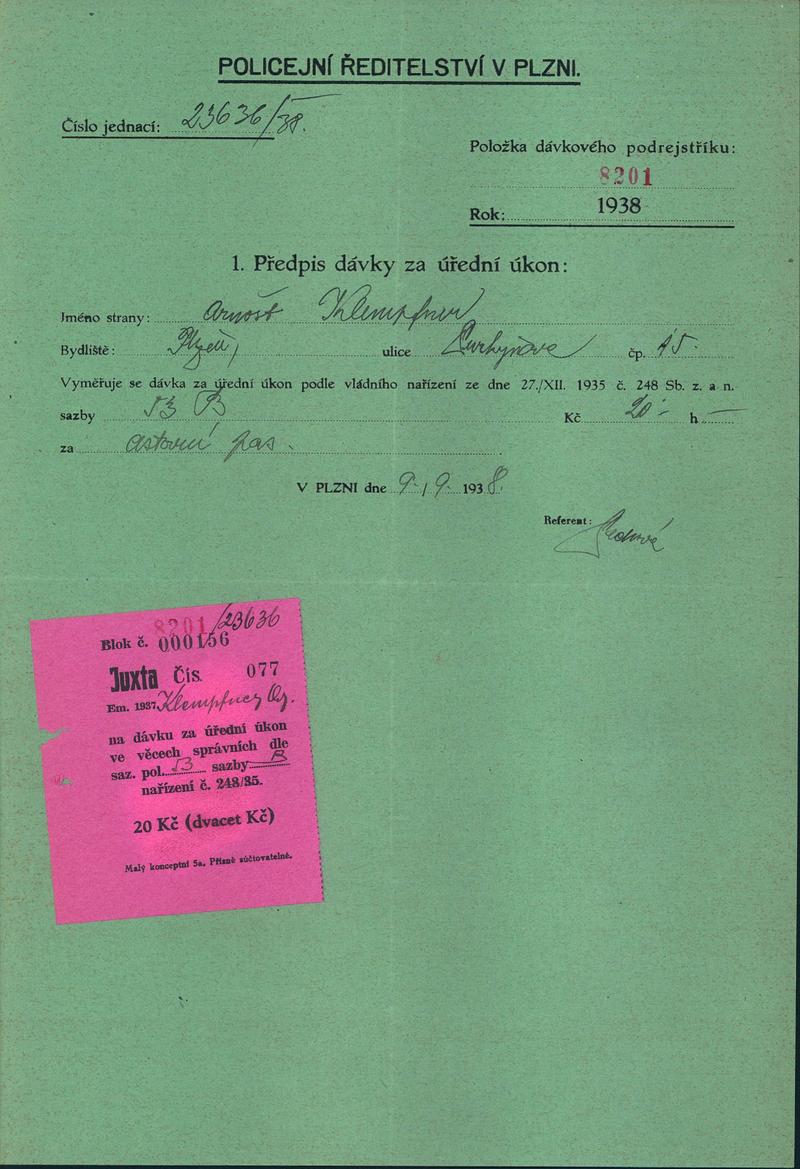 POLICEJNÍ ŘEDITELSTVÍ V PLZNI.
Číslo jednací: 23636/38.
Položka dávkového podrejstříku:
8201
Rok: 1938
1. Předpis dávky za úřední úkon:
Jméno strany: Arnošt Klempfner
Bydliště: Plzeň, ulice Purkyňova čp. 15
Vyměřuje se dávka za úřední úkon podle vládního nařízení ze dne 27./XII. 1935 č. 248 Sb. z. a n.
sazby 53 B Kč 20 - h —
za cestovní pas.
V PLZNI dne 9. / 9. 1938.
Referent:
8201/23636
Blok č. 000156
Juxta Čís. 077
Em. 1937 Klempfner
na dávku za úřední úkon
ve věcech správních dle
saz. pol. 53 sazby B
nařízení č. 248/35.
20 Kč (dvacet Kč)
Malý konceptní 5a. Přísně súčtovatelné.